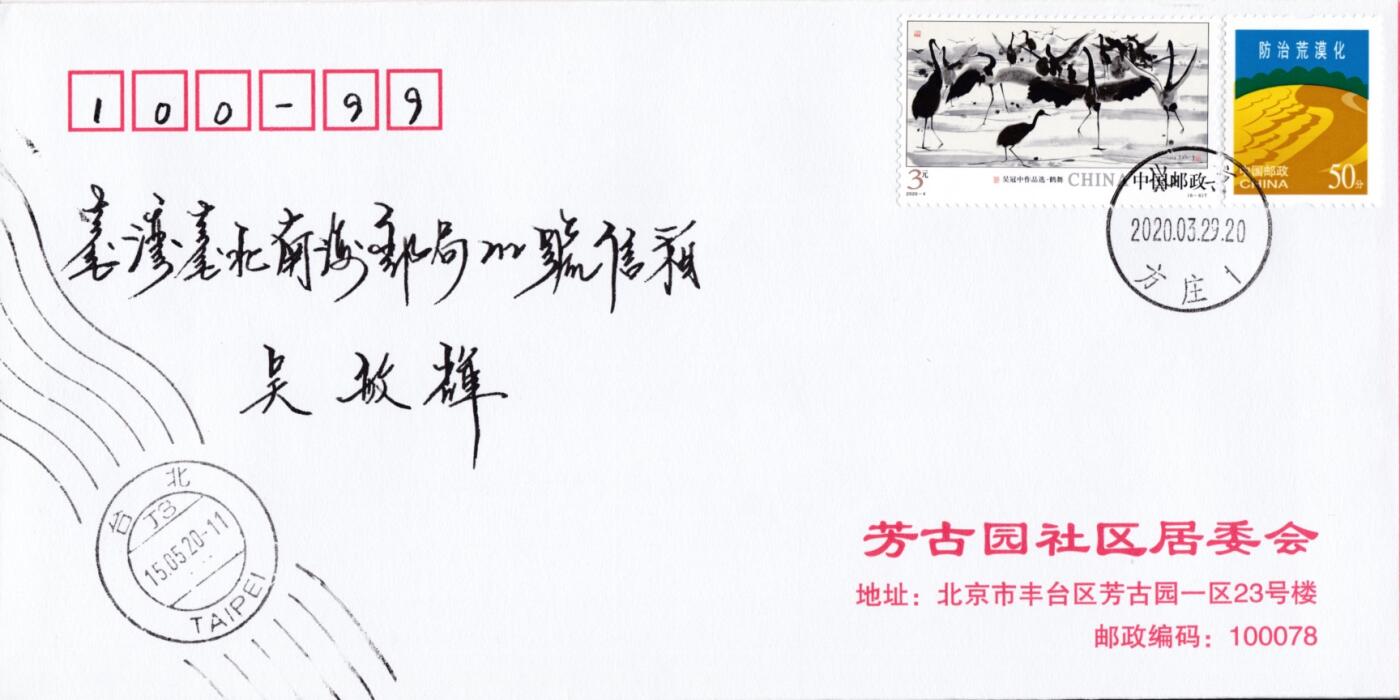 防治荒漠化
中国邮政
CHINA
50分
3元
2020-4
吴冠中作品选·鹤舞 CHINA 中国邮政
2020.03.29.20
方庄1
100-99
臺灣臺北南海郵局 號信箱
吴敏輝
台北
J8
15.05.20-11
TAIPEI
芳古园社区居委会
地址：北京市丰台区芳古园一区23号楼
邮政编码：100078